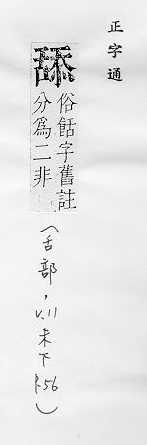 正字通
舔
俗餂字舊註
分爲二非
(舌部,V.11未下P.56)